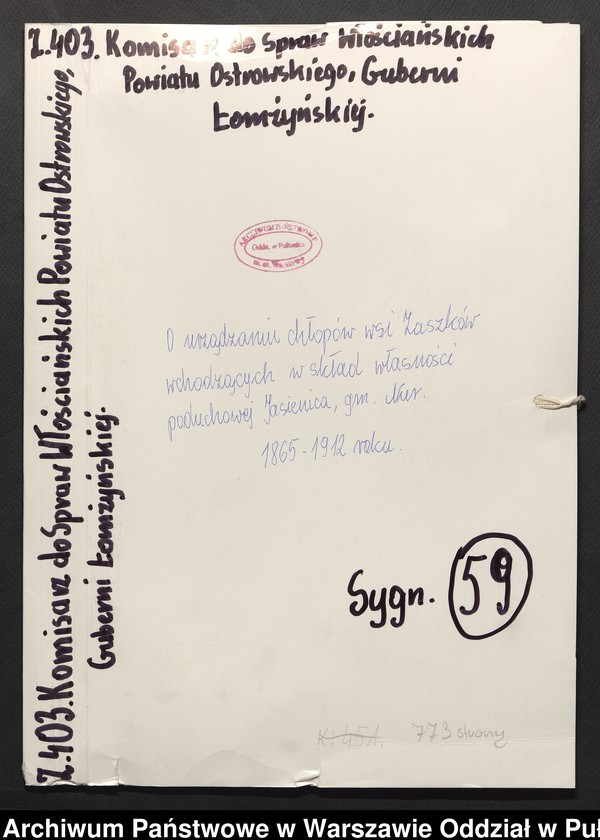 Z.403. Komisarz do Spraw Włościańskich
Powiatu Ostrowskiego, Guberni
Łomżyńskiéj.
Z.403. Komisarz do Spraw Włościańskich Powiatu Ostrowskiego,
Guberni Łomżyńskiéj.
ARCHIWUM PAŃSTWOWE
Oddz. w Pułtusku
m. st. Warszawy
O urządzaniu chłopów wsi Zaszków
wchodzących w skład własności
poduchowej Jasienica, gm. Nur.
1865-1912 roku.
Sygn. 59
K: 451. 773 strony
Archiwum Państwowe w Warszawie Oddział w Puł